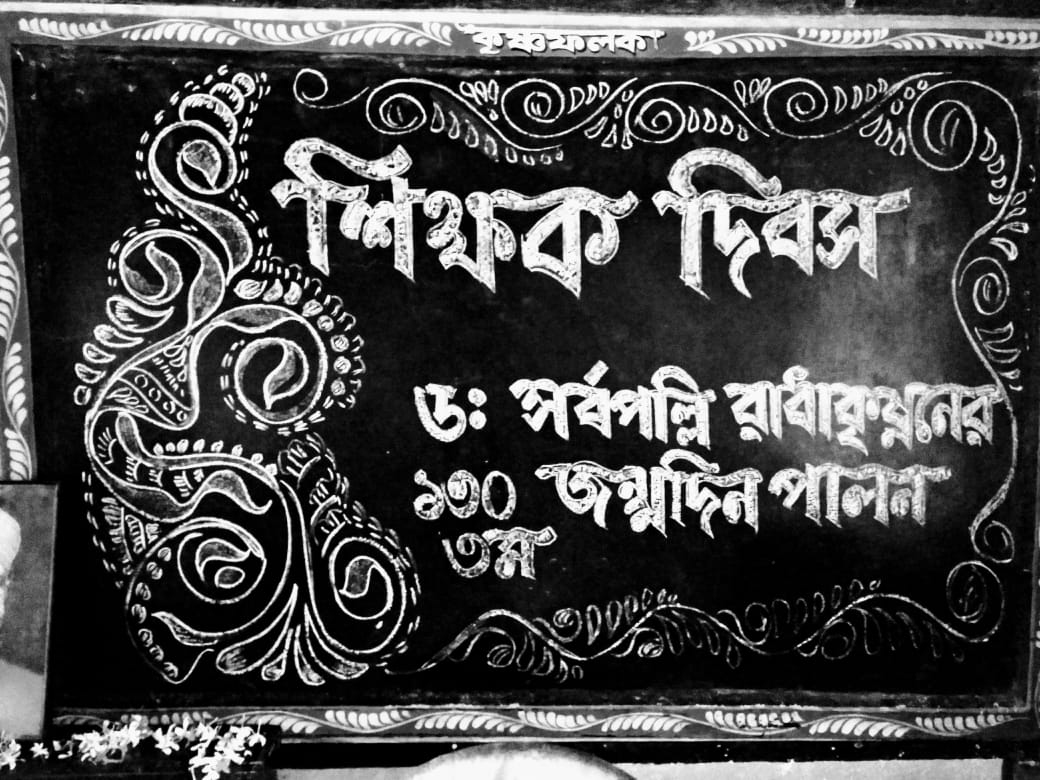 কৃষ্ণফলক
শিক্ষক দিবস
ডঃ সর্বপল্লি রাধাকৃষ্ননের
১৩০ জন্মদিন পালন
তম